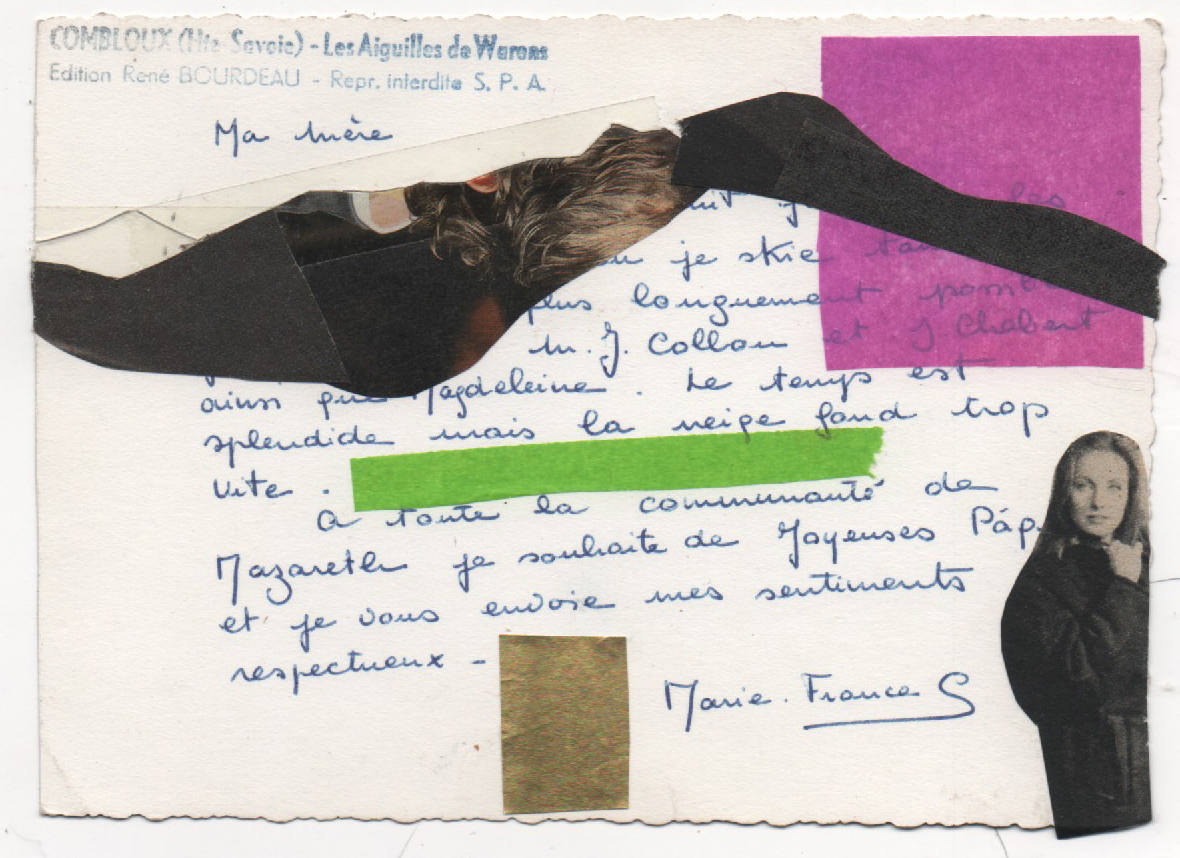 COMBLOUX (Hte Savoie) - Les Aiguilles de Warens
Edition René BOURDEAU - Repr. interdite S. P. A.
Ma Mère
je skie
plus longuement possible
M. J. Collon et J. Chabert
ainsi que Magdeleine. Le temps est
splendide mais la neige fond trop
vite.
A toute la communauté de
Nazareth je souhaite de Joyeuses Pâq
et je vous envoie mes sentiments
respectueux -
Marie-France S